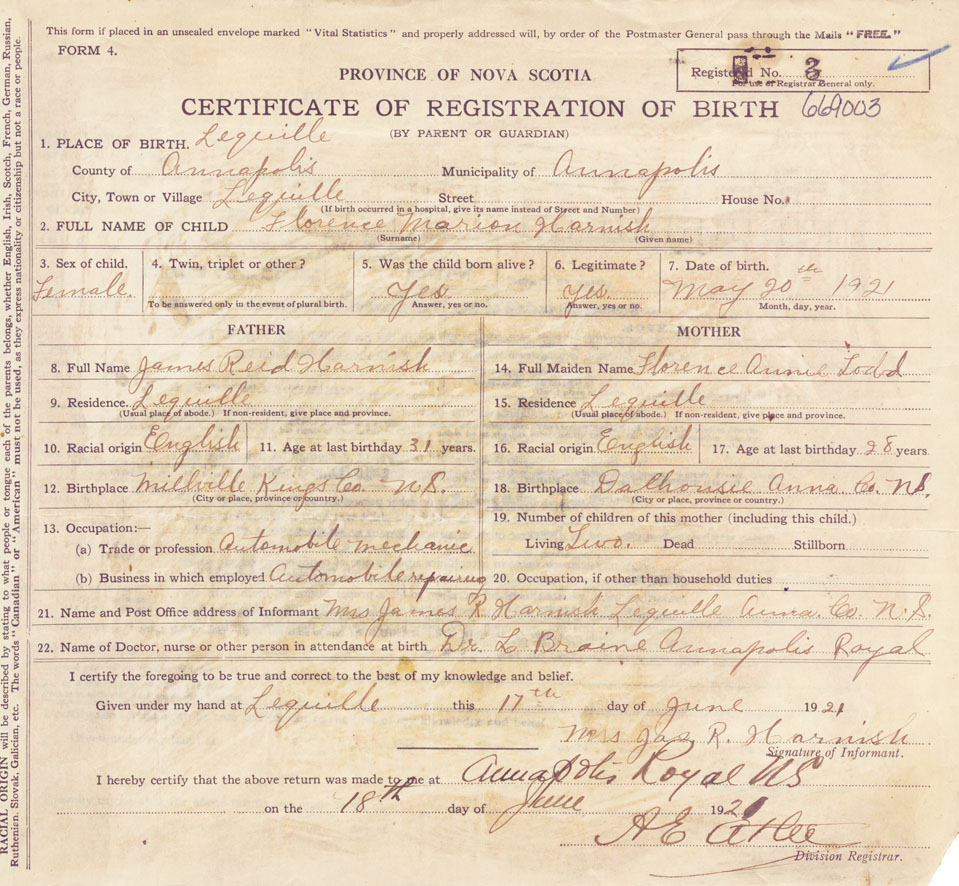 This form if placed in an unsealed envelope marked "Vital Statistics" and properly addressed will, by order of the Postmaster General pass through the Mails "FREE."
FORM 4.
PROVINCE OF NOVA SCOTIA
Registered No. 3
For use of Registrar General only.
CERTIFICATE OF REGISTRATION OF BIRTH 669003
(BY PARENT OR GUARDIAN)
1. PLACE OF BIRTH. Lequille
County of Annapolis Municipality of Annapolis
City, Town or Village Lequille Street House No.
(If birth occurred in a hospital, give its name instead of Street and Number)
2. FULL NAME OF CHILD Florence Marion Harnish
(Surname) (Given name)
3. Sex of child. 4. Twin, triplet or other? 5. Was the child born alive? 6. Legitimate? 7. Date of birth.
Female. Yes Yes. May 20th 1921
To be answered only in the event of plural birth. Answer, yes or no. Answer, yes or no. Month, day, year.
FATHER MOTHER
8. Full Name James Reid Harnish 14. Full Maiden Name Florence Annie Todd
9. Residence. Lequille 15. Residence Lequille
(Usual place of abode.) If non-resident, give place and province. (Usual place of abode.) If non-resident, give place and province.
10. Racial origin English 11. Age at last birthday 31 years. 16. Racial origin English 17. Age at last birthday 28 years
12. Birthplace Millville Kings Co. N.S. 18. Birthplace Dalhousie Anna Co. N.S.
(City or place, province or country.) (City or place, province or country.)
13. Occupation:— 19. Number of children of this mother (including this child.)
(a) Trade or profession Automobile mechanic Living Two. Dead Stillborn
(b) Business in which employed Automobile repairing 20. Occupation, if other than household duties
21. Name and Post Office address of Informant Mrs James R Harnish Lequille Anna. Co. N.S.
22. Name of Doctor, nurse or other person in attendance at birth Dr. L Braine Annapolis Royal
I certify the foregoing to be true and correct to the best of my knowledge and belief.
Given under my hand at Lequille this 17th day of June 1921
Mrs Jas R. Harnish
Signature of Informant.
I hereby certify that the above return was made to me at Annapolis Royal NS
on the 18th day of June 1921
Division Registrar.
RACIAL ORIGIN will be described by stating to what people or tongue each of the parents belongs, whether English, Irish, Scotch, French, German, Russian,
Ruthenian, Slovak, Galician, etc. The words "Canadian" or "American" must not be used, as they express nationality or citizenship but not a race or people.